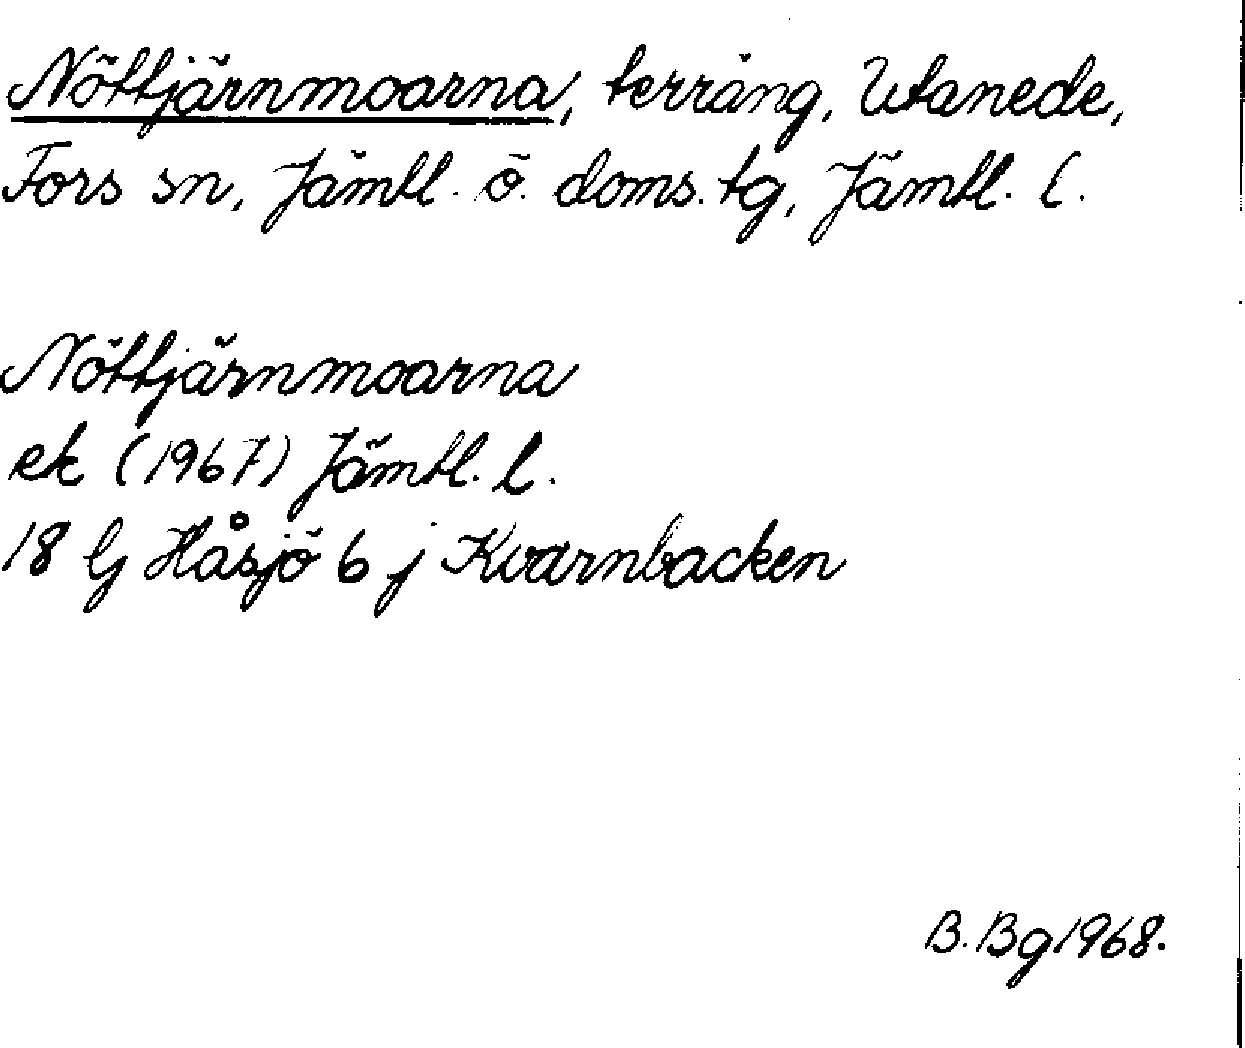 Nöttjärnmoarna, terräng, Utanede,
Fors sn, Jämtl. ö. doms. tg, Jämtl. l.
Nöttjärnmoarna
ek (1967) Jämtl. l.
18 G Håsjö 6 j Kvarnbacken
B. Bg 1968.